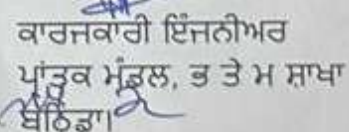 ਕਾਰਜਕਾਰੀ ਇੰਜਨੀਅਰ
ਪ੍ਰਾਂਤਕ ਮੰਡਲ, ਭ ਤੇ ਮ ਸ਼ਾਖਾ
ਬਠਿੰਡਾ।